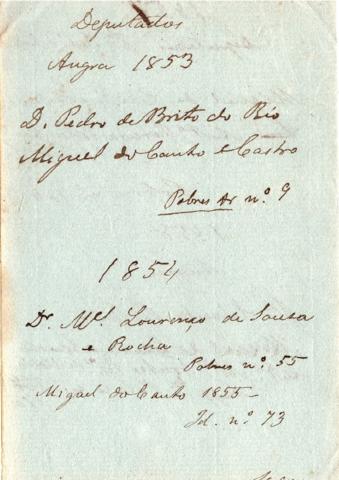 Deputados
Angra 1853
D. Pedro de Brito do Rio
Miguel do Canto e Castro
Pobres Ar nº. 9
1854
Dr. Mel. Lourenço de Sousa
e Rocha
Pobres nº. 55
Miguel do Canto 1855-
Id. nº. 73